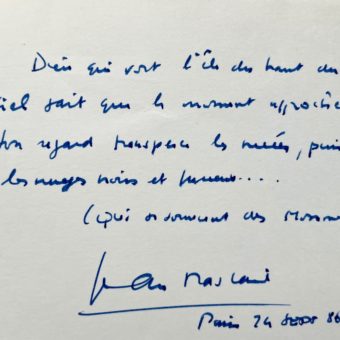 Dieu qui voit l'île du haut du
ciel sait que le moment approche
son regard transperce les nuées, puis
les nuages noirs et
(Qui se souvient des
Paris 24 86